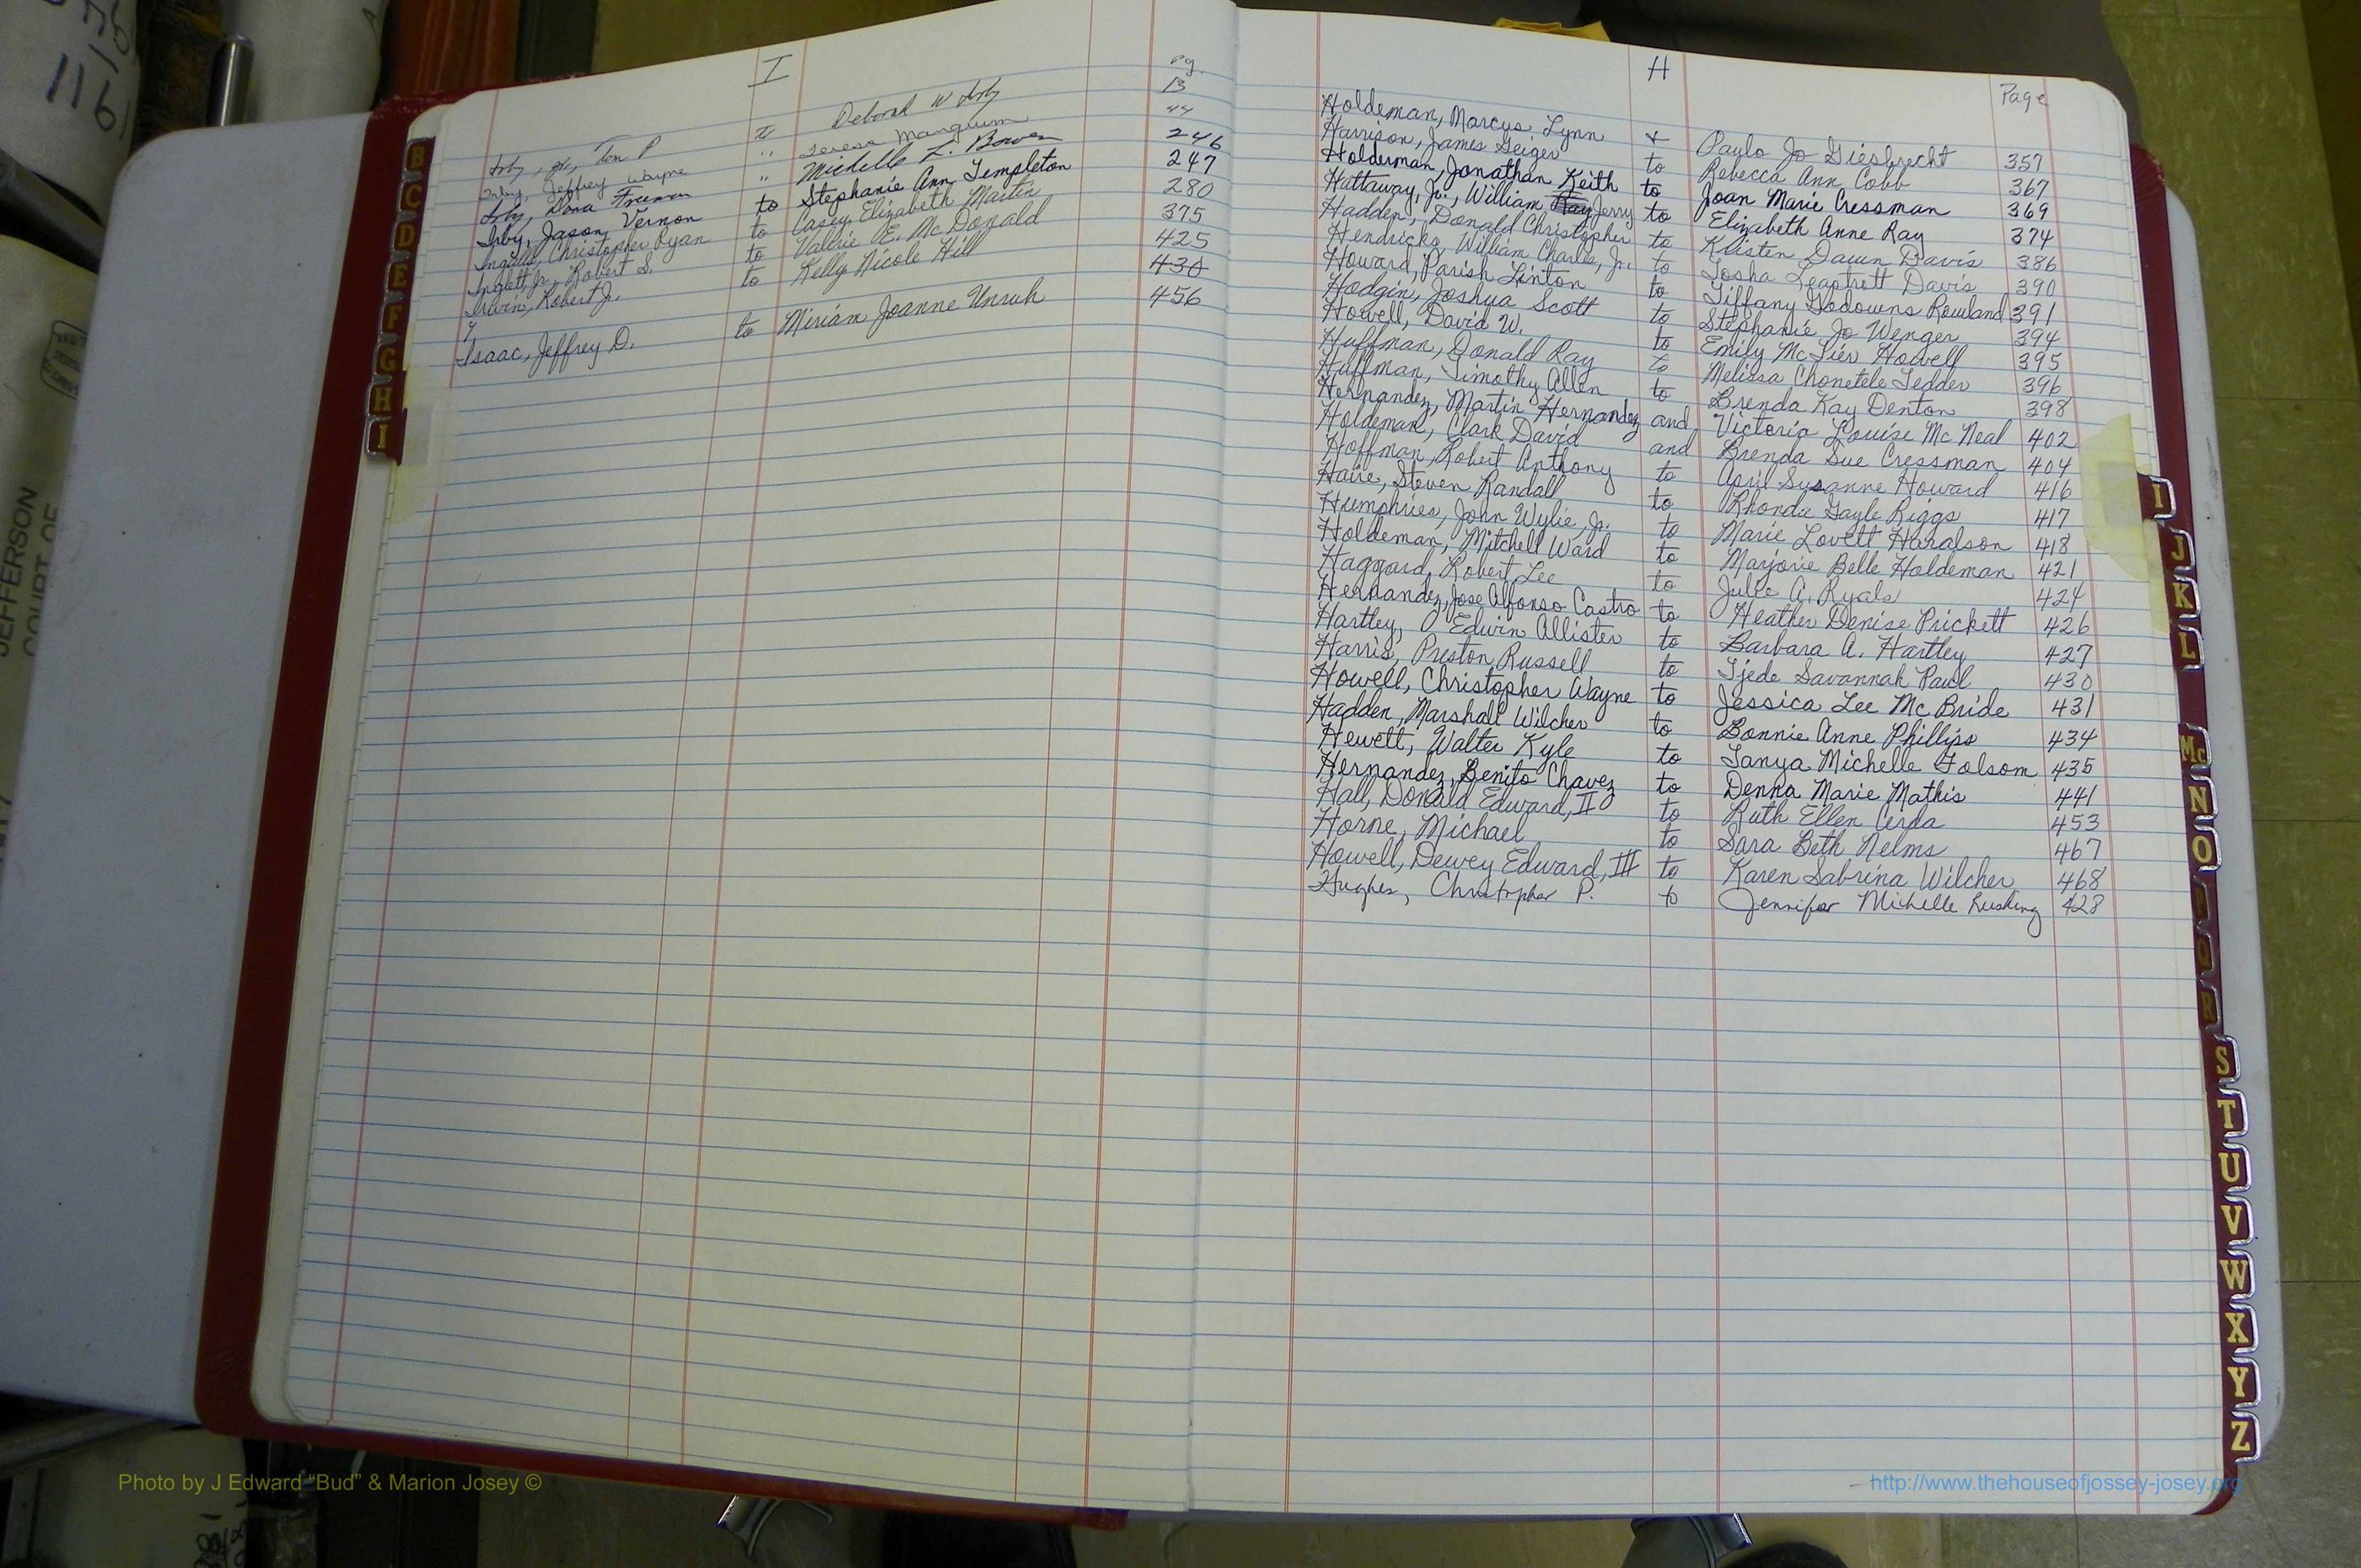 I
pg.
Irby, Jr., Tom P to Deborah W Irby 13
Irby, Jeffrey Wayne " Teresa Mangum 44
Irby, Dana Freeman " Michelle L. Bowen 246
Irby, Jason Vernon to Stephanie Ann Templeton 247
Ingalls, Christopher Ryan to Casey Elizabeth Martin 280
Inglett, Jr., Robert S. to Valerie E. McDonald 375
Irwin, Robert J. to Kelly Nicole Hill 425
430
Isaac, Jeffrey D. to Miriam Joanne Unruh 456
H
Page
Holdeman, Marcus Lynn + Paula Jo Giesbrecht 357
Harrison, James Geiger to Rebecca Ann Cobb 367
Holderman, Jonathan Keith to Joan Marie Cressman 369
Hattaway, Jr., William Ray Jerry to Elizabeth Anne Ray 374
Hadden, Donald Christopher to Kristen Dawn Davis 386
Hendricks, William Charles, Jr. to Tosha Leaptrott Davis 390
Howard, Parish Linton to Tiffany Godowns Rowland 391
Hodgin, Joshua Scott to Stephanie Jo Wenger 394
Howell, David W. to Emily McTier Howell 395
Huffman, Donald Ray to Melissa Chonetele Tedder 396
Huffman, Timothy Allen to Brenda Kay Denton 398
Hernandez, Martin Hernandez and Victoria Louise McNeal 402
Holdeman, Clark David and Brenda Sue Cressman 404
Hoffman, Robert Anthony to April Susanne Howard 416
Haire, Steven Randall to Rhonda Gayle Riggs 417
Humphries, John Wylie, Jr. to Marie Lovett Haralson 418
Holdeman, Mitchell Ward to Marjorie Belle Holdeman 421
Haggard, Robert Lee to Julie A. Ryals 424
Hernandez, Jose Alfonso Castro to Heather Denise Prickett 426
Hartley, O Edwin Allister to Barbara A. Hartley 427
Harris, Preston Russell to Tjede Savannah Paul 430
Howell, Christopher Wayne to Jessica Lee McBride 431
Hadden, Marshall Wilcher to Bonnie Anne Phillips 434
Hewett, Walter Kyle to Tanya Michelle Folsom 435
Hernandez, Benito Chavez to Denna Marie Mathis 441
Hall, Donald Edward, II to Ruth Ellen Cerda 453
Horne, Michael to Sara Beth Nelms 467
Howell, Dewey Edward, III to Karen Sabrina Wilcher 468
Hughes, Christopher P. to Jennifer Michelle Rushing 428
B
C
D
E
F
G
H
I
I
J
K
L
Mc
N
O
P
Q
R
S
T
U
V
W
X
Y
Z
JEFFERSON
COURT OF
Photo by J Edward "Bud" & Marion Josey ©
http://www.thehouseofjossey-josey.org